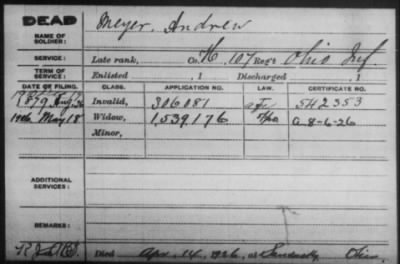 DEAD
NAME OF SOLDIER: Meyer, Andrew
SERVICE: Late rank, Co. H, 107 Reg't Ohio Inf
TERM OF SERVICE: Enlisted , 1 Discharged , 1
DATE OF FILING. CLASS. APPLICATION NO. LAW. CERTIFICATE NO.
1879 Aug Invalid, 306081 542353
1926 May 18 Widow, 1,539,176 a 8-6-26
Minor,
ADDITIONAL SERVICES:
REMARKS:
Died Apr. 14, 1926, at Sandusky Ohio